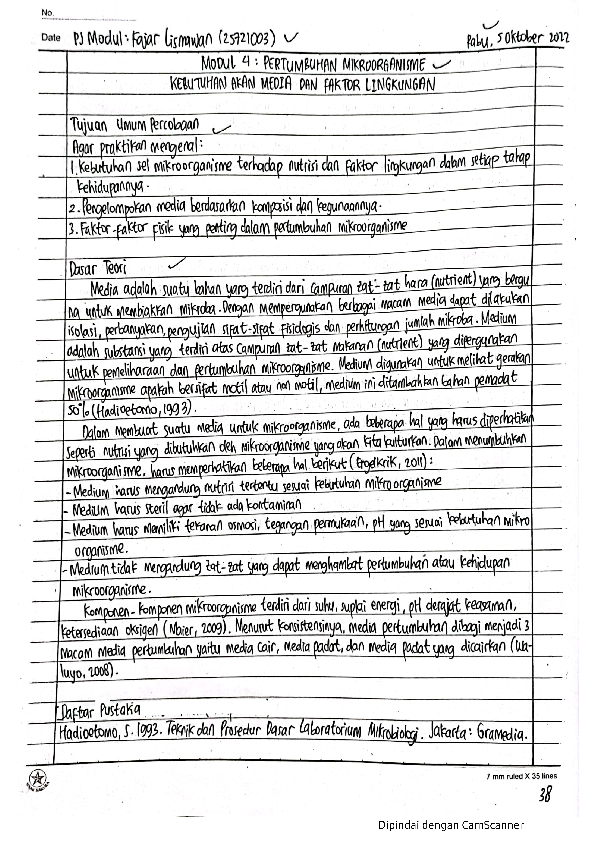 No.
Date PJ Modul : Fajar Lismawan (25721003) Rabu, 5 Oktober 2022
MODUL 4 : PERTUMBUHAN MIKROORGANISME
KEBUTUHAN AKAN MEDIA DAN FAKTOR LINGKUNGAN
Tujuan Umum Percobaan
Agar praktikan mengenal:
1. Kebutuhan sel mikroorganisme terhadap nutrisi dan faktor lingkungan dalam setiap tahap
kehidupannya.
2. Pengelompokan media berdasarkan komposisi dan kegunaannya.
3. Faktor-faktor fisik yang penting dalam pertumbuhan mikroorganisme
Dasar Teori
Media adalah suatu bahan yang terdiri dari campuran zat-zat hara (nutrient) yang bergu
na untuk membiakkan mikroba. Dengan mempergunakan berbagai macam media dapat dilakukan
isolasi, perbanyakan, pengujian sifat-sifat fisiologis dan perhitungan jumlah mikroba. Medium
adalah substansi yang terdiri atas campuran zat-zat makanan (nutrient) yang dipergunakan
untuk pemeliharaan dan pertumbuhan mikroorganisme. Medium digunakan untuk melihat gerakan
mikroorganisme apakah bersifat motil atau non motil, medium ini ditambahkan bahan pemadat
50% (Hadioetomo, 1993).
Dalam membuat suatu media untuk mikroorganisme, ada beberapa hal yang harus diperhatikan
seperti nutrisi yang dibutuhkan oleh mikroorganisme yang akan kita kulturkan. Dalam menumbuhkan
mikroorganisme, harus memperhatikan beberapa hal berikut (Engelkrik, 2011):
- Medium harus mengandung nutrisi tertentu sesuai kebutuhan mikroorganisme
- Medium harus steril agar tidak ada kontaminan
- Medium harus memiliki tekanan osmosi, tegangan permukaan, pH yang sesuai kebutuhan mikro
organisme.
- Medium tidak mengandung zat-zat yang dapat menghambat pertumbuhan atau kehidupan
mikroorganisme.
Komponen-komponen mikroorganisme terdiri dari suhu, suplai energi, pH derajat keasaman,
ketersediaan oksigen (Nbier, 2009). Menurut konsistensinya, media pertumbuhan dibagi menjadi 3
macam media pertumbuhan yaitu media cair, media padat, dan media padat yang dicairkan (Wa-
luyo, 2008).
Daftar Pustaka
Hadioetomo, S. 1993. Teknik dan Prosedur Dasar Laboratorium Mikrobiologi. Jakarta: Gramedia.
7 mm ruled X 35 lines
38
Dipindai dengan CamScanner